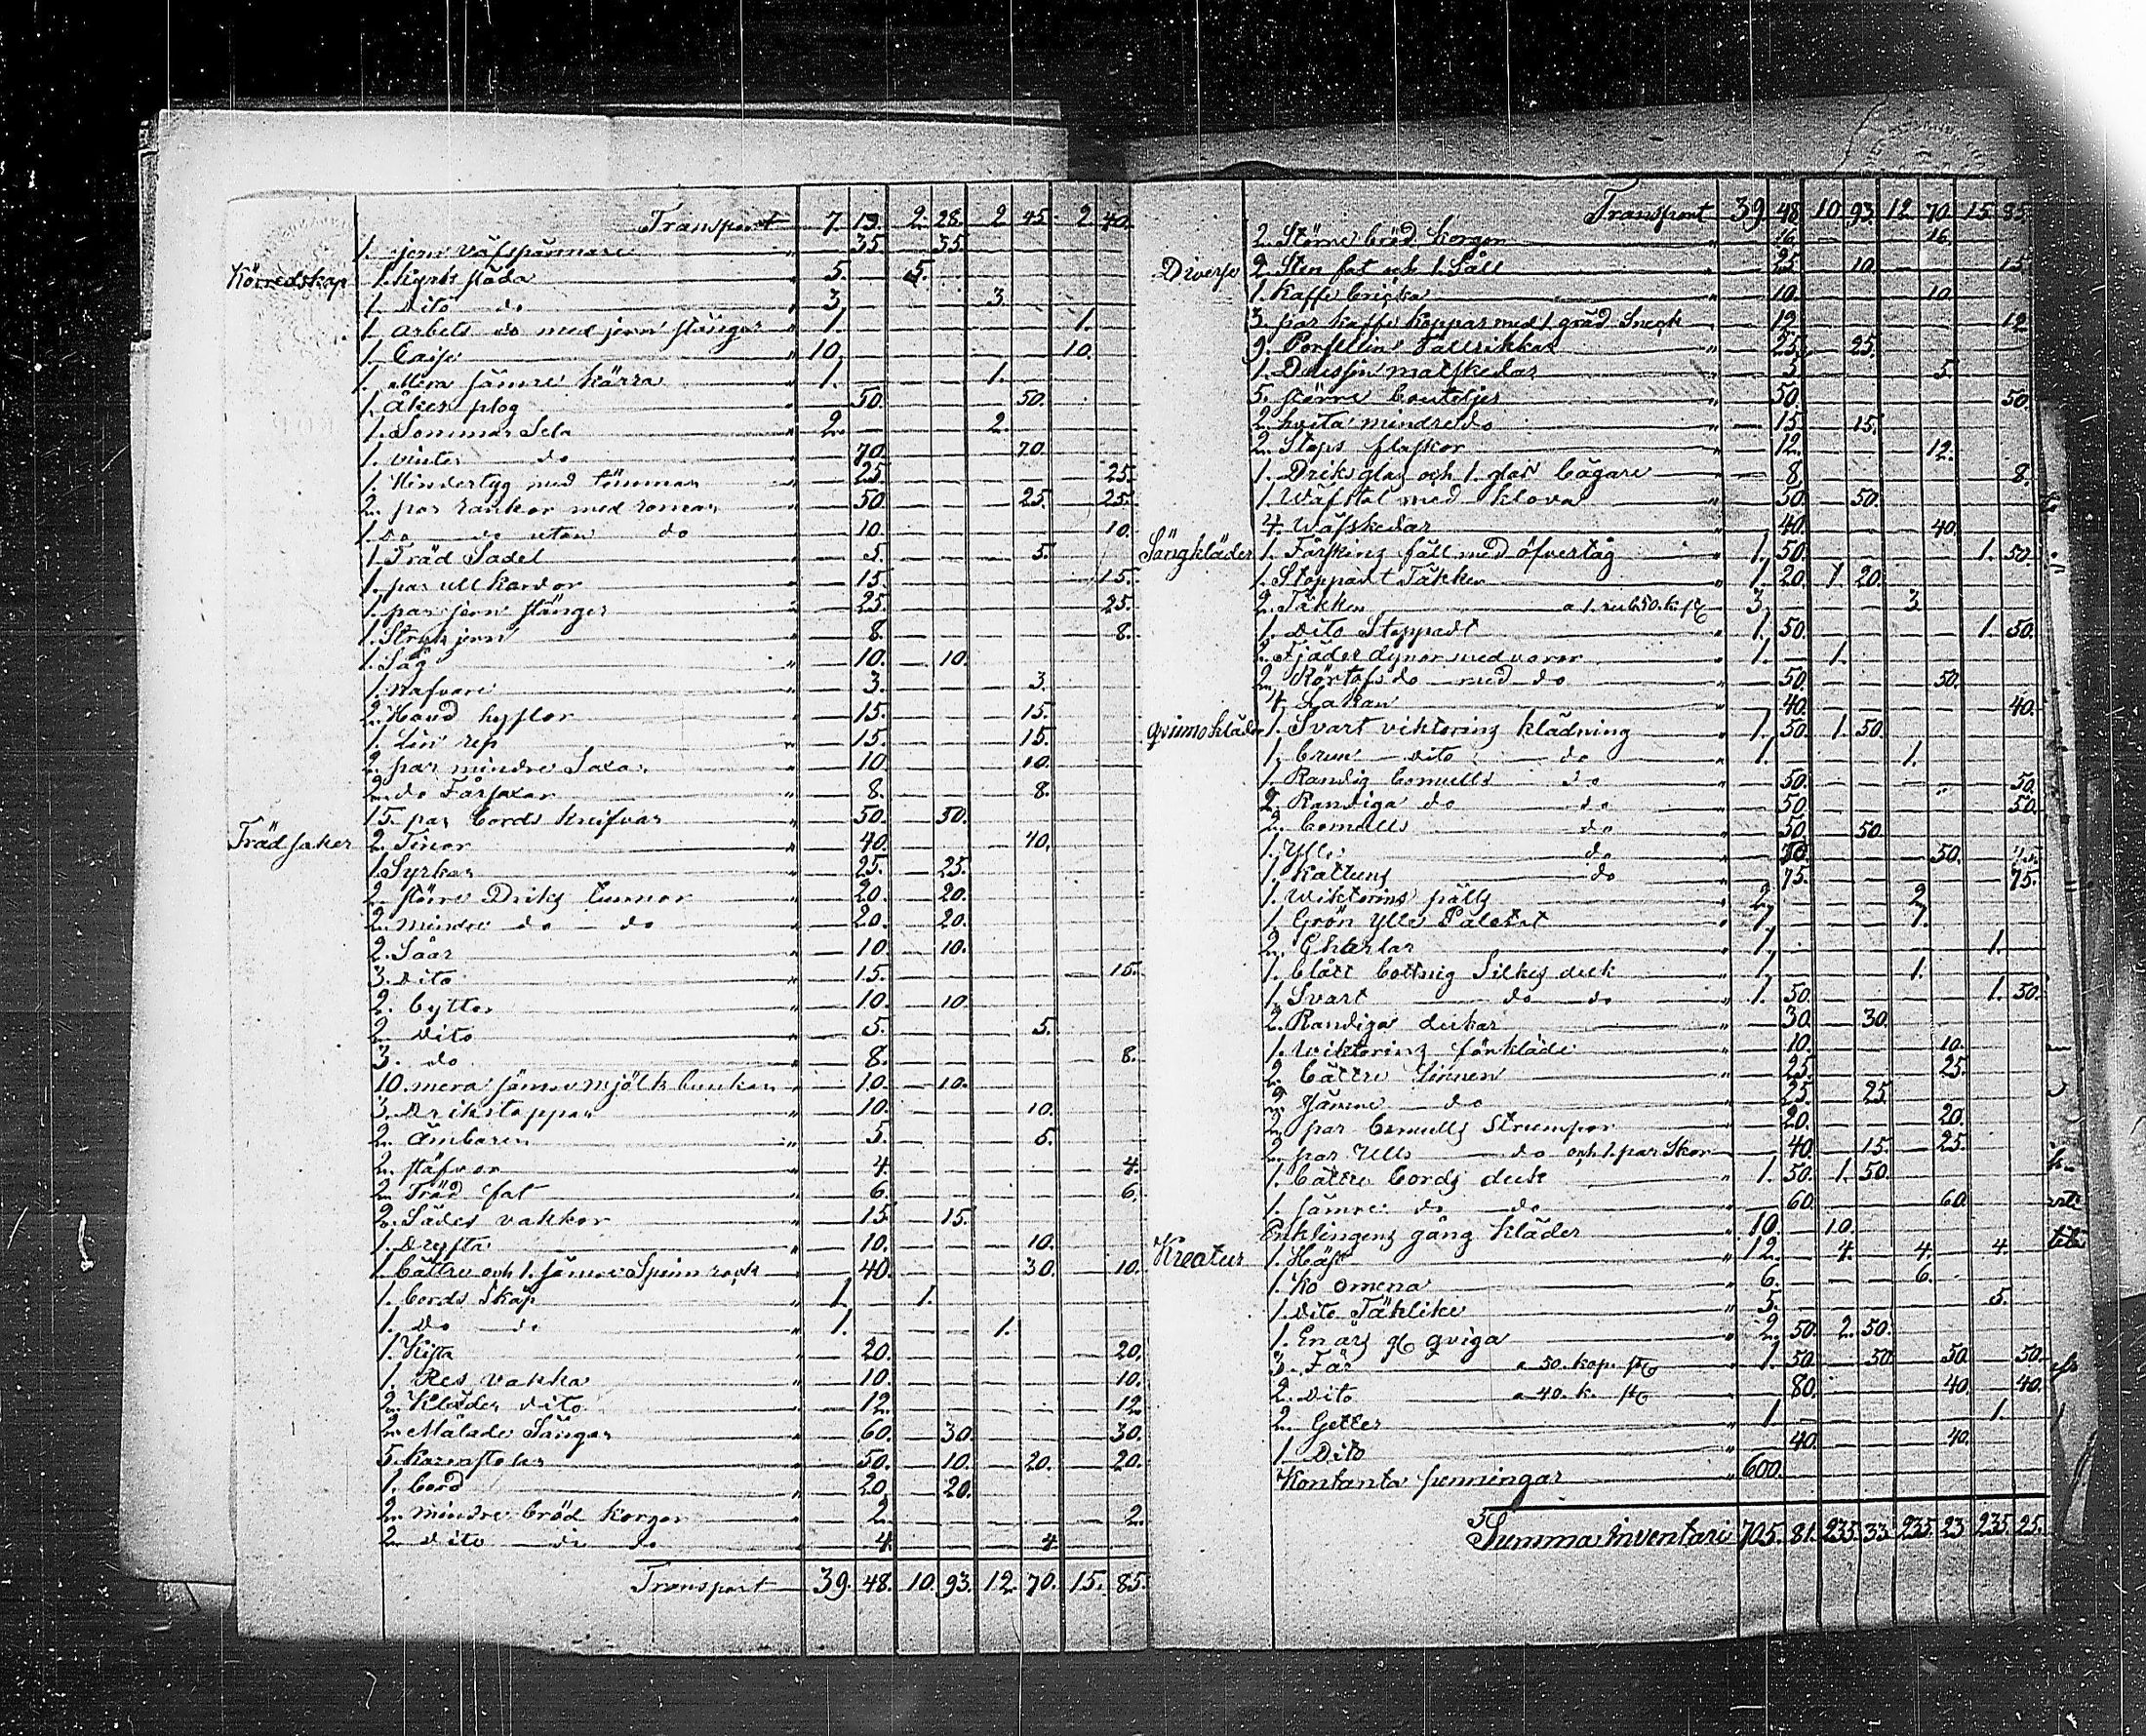 Transport 7. 13. 2. 28. 2. 45. 2. 40.
1. jern väfspännare " — 35 — 35
Köreredskap 1. Kyrk släda " 5. — 5.
1. Dito do " 3. — 3.
1. arbets do med jern stänger " 1. — 1.
1. Caise " 10. — 10.
1. Mera sämre kärra " 1. — 1.
1. åker plog — 50. — 50.
1. Sommar Sela " 2. — 2.
1. vinter do — 70. — 70.
1. Hindertyg med tömmar " — 25. — 25.
2. par rankor med remar " — 50. — 25. — 25.
1. Do do utan do " — 10. — 10.
1. Träd Sadel " — 5. — 5.
1. par ull kardor " — 15. — 15.
1. par jern stänger " — 25. — 25.
1. Stryk jern " — 8. — 8.
1. Såg " — 10. — 10.
1. Nafvare " — 3. — 3.
2. Hand hyflar " — 15. — 15.
1. Lin rep " — 15. — 15.
2. par mindre Saxar " — 10. — 10.
2. do Fårsaxar " — 8. — 8.
15. par bords knifvar " — 50. — 50.
Trädsaker 2. Tinor " — 40. — 40.
1. Syrkar " — 25. — 25.
2. större Driks tunnor " — 20. — 20.
2. mindre do do " — 20. — 20.
2. Såar " — 10. — 10.
3. Dito " — 15. — 15.
2. byttor " — 10. — 10.
2. Dito " — 5. — 5.
3. do " — 8. — 8.
10. mera sämre mjölk bunkar " — 10. — 10.
3. Drikstoppar " — 10. — 10.
2. Ämbaren " — 5. — 5.
2. stäfvor " — 4. — 4.
2. Träd fat " — 6. — 6.
2. Sädes vakkor " — 15. — 15.
1. Dryfta " — 10. — 10.
1. bättre och 1. sämre Spinrock " — 40. — 30. — 10.
1. bords Skåp " 1. — 1.
1. Do do " 1. — 1.
1. Kista " — 20. — 20.
1. Res vakka " — 10. — 10.
2. Kläder dito " — 12. — 12.
2. Målade Sängar " — 60. — 30. — 30.
5. Karmstolar " — 50. — 10. — 20. — 20.
1. bord " — 20. — 20.
2. mindre bröd korgar " — 2. — 2.
2. dito do do " — 4. — 4.
Transport 39. 48. 10. 93. 12. 70. 15. 85.
Transport 39. 48. 10. 93. 12. 70. 15. 85.
2. Större bröd korgar " — 16. — 16.
Diverse 2. Sten fat och 1. Såll " — 25. — 10. — 15.
1. Kaffe bricka " — 10. — 10.
3. par kaffe koppar med 1. gräd Sneck " — 12. — 12.
9. Porsllin Tallrikkar " — 25. — 25.
1. Dussin matskedar " — 5. — 5.
5. större bouteljer " — 50. — 50.
2. hvita mindre do " — 15. — 15.
2. Stops flaskor " — 12. — 12.
1. Driksglas och 1. glas bägare " — 8. — 8.
1. Wäfstol med klova " — 50. — 50.
4. Wäfskedar " — 40. — 40.
Sängkläder 1. Fårskins fäll med öfvertåg " 1. 50. — 1. 50.
1. Stoppadt Täkke " 1. 20. 1. 20.
2. Täkken a 1. rub 50. k st " 3. — 3.
1. Dito Stoppadt " 1. 50. — 1. 50.
2. Fjäder dynor med varor " 1. — 1.
2. Rörtofs do med do " — 50. — 50.
4. Lakan " — 40. — 40.
qvinnokläder 1. Svart viktorins klädning " 1. 50. 1. 50.
1. brun dito do " 1. — 1.
1. Randig bomulls do " — 50. — 50.
2. Randiga do do " — 50. — 50.
2. bomulls do " — 50. — 50.
1. Ylle do " — 50. — 50.
1. Kattuns do " — 75. — 75.
1. Wiktorins pälts " 2. — 2.
1. Grön ylle Paletot " 7. — 7.
2. Charlar " 1. — 1.
1. blått bottnig Silkes duk " 1. — 1.
1. Svart do do " 1. 50. — 1. 50.
2. Randiga dukar " — 30. — 30.
1. Wiktorins förkläde " — 10. — 10.
2. bättre linnen " — 25. — 25.
2. Sämre do " — 25. — 25.
2. par bomulls Strumpor " — 20. — 20.
2. par Ulls do och 1. par Skor " — 40. — 15. — 25.
1. bättre bords duk " 1. 50. 1. 50.
1. sämre do do " — 60. — 60.
Enklingens gång kläder " 10. — 10.
Kreatur 1. Häst " 12. — 4. — 4. — 4.
1. Ko omena " 6. — 6.
1. Dito Täklike " 5. — 5.
1. En års gl qviga " 2. 50. 2. 50.
3. Får a 50. kop. st " 1. 50. — 50. — 50. — 50.
2. Dito a 40. k. st — 80. — 40. — 40.
2. Getter " 1. — 1.
1. Dito " — 40. — 40.
Kontanta penningar " 600.
Summa inventari 705. 81. 235. 33. 235. 23. 235. 25.